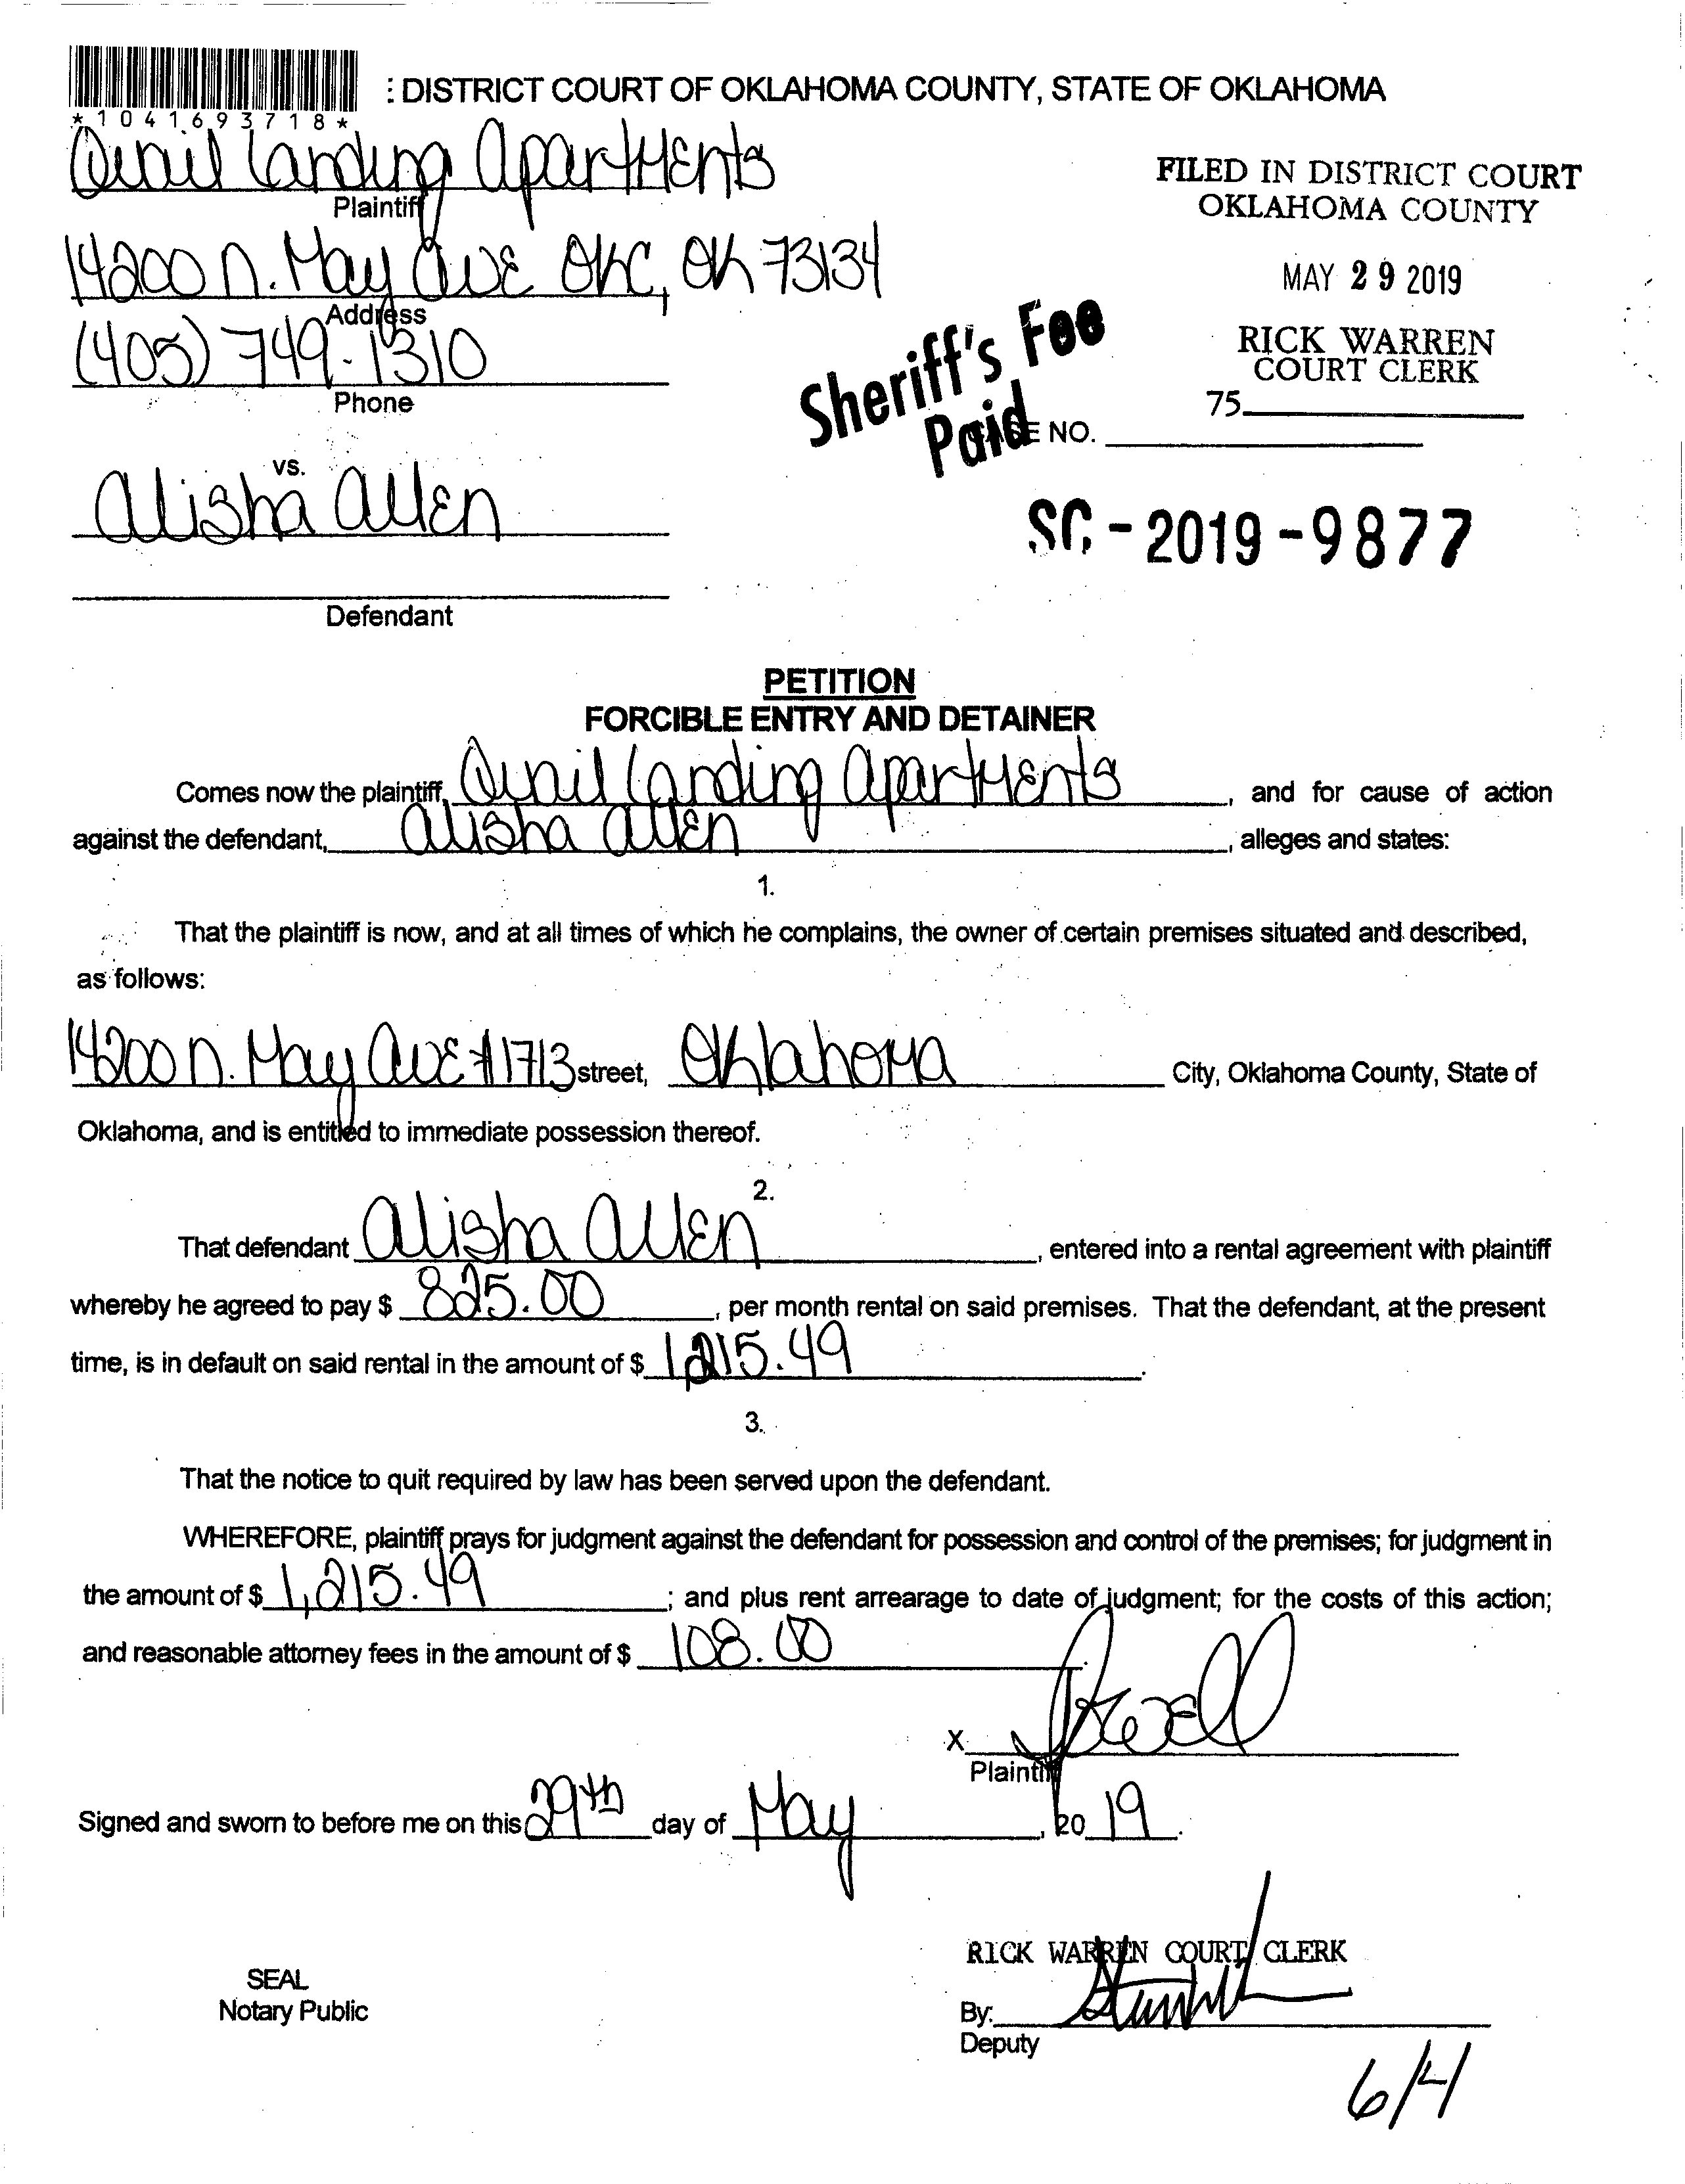 : DISTRICT COURT OF OKLAHOMA COUNTY, STATE OF OKLAHOMA
*1041693718*
Quail Landing Apartments
Plaintiff
FILED IN DISTRICT COURT
OKLAHOMA COUNTY
14200 N. May Ave OKC, OK 73134
Address
MAY 29 2019
(405) 749-1310
Phone
Sheriff's Fee
Paid
RICK WARREN
COURT CLERK
75
CASE NO.
vs.
Alisha Allen
SC - 2019 - 9877
Defendant
PETITION
FORCIBLE ENTRY AND DETAINER
Comes now the plaintiff, Quail Landing Apartments, and for cause of action
against the defendant, Alisha Allen, alleges and states:
1.
That the plaintiff is now, and at all times of which he complains, the owner of certain premises situated and described,
as follows:
14200 N. May Ave #1713 street, Oklahoma City, Oklahoma County, State of
Oklahoma, and is entitled to immediate possession thereof.
2.
That defendant Alisha Allen, entered into a rental agreement with plaintiff
whereby he agreed to pay $ 825.00, per month rental on said premises. That the defendant, at the present
time, is in default on said rental in the amount of $ 1,215.49.
3.
That the notice to quit required by law has been served upon the defendant.
WHEREFORE, plaintiff prays for judgment against the defendant for possession and control of the premises; for judgment in
the amount of $ 1,215.49; and plus rent arrearage to date of judgment; for the costs of this action;
and reasonable attorney fees in the amount of $ 108.00.
X
Plaintiff
Signed and sworn to before me on this 29th day of May, 2019.
RICK WARREN COURT CLERK
SEAL
Notary Public
By:
Deputy
6/4